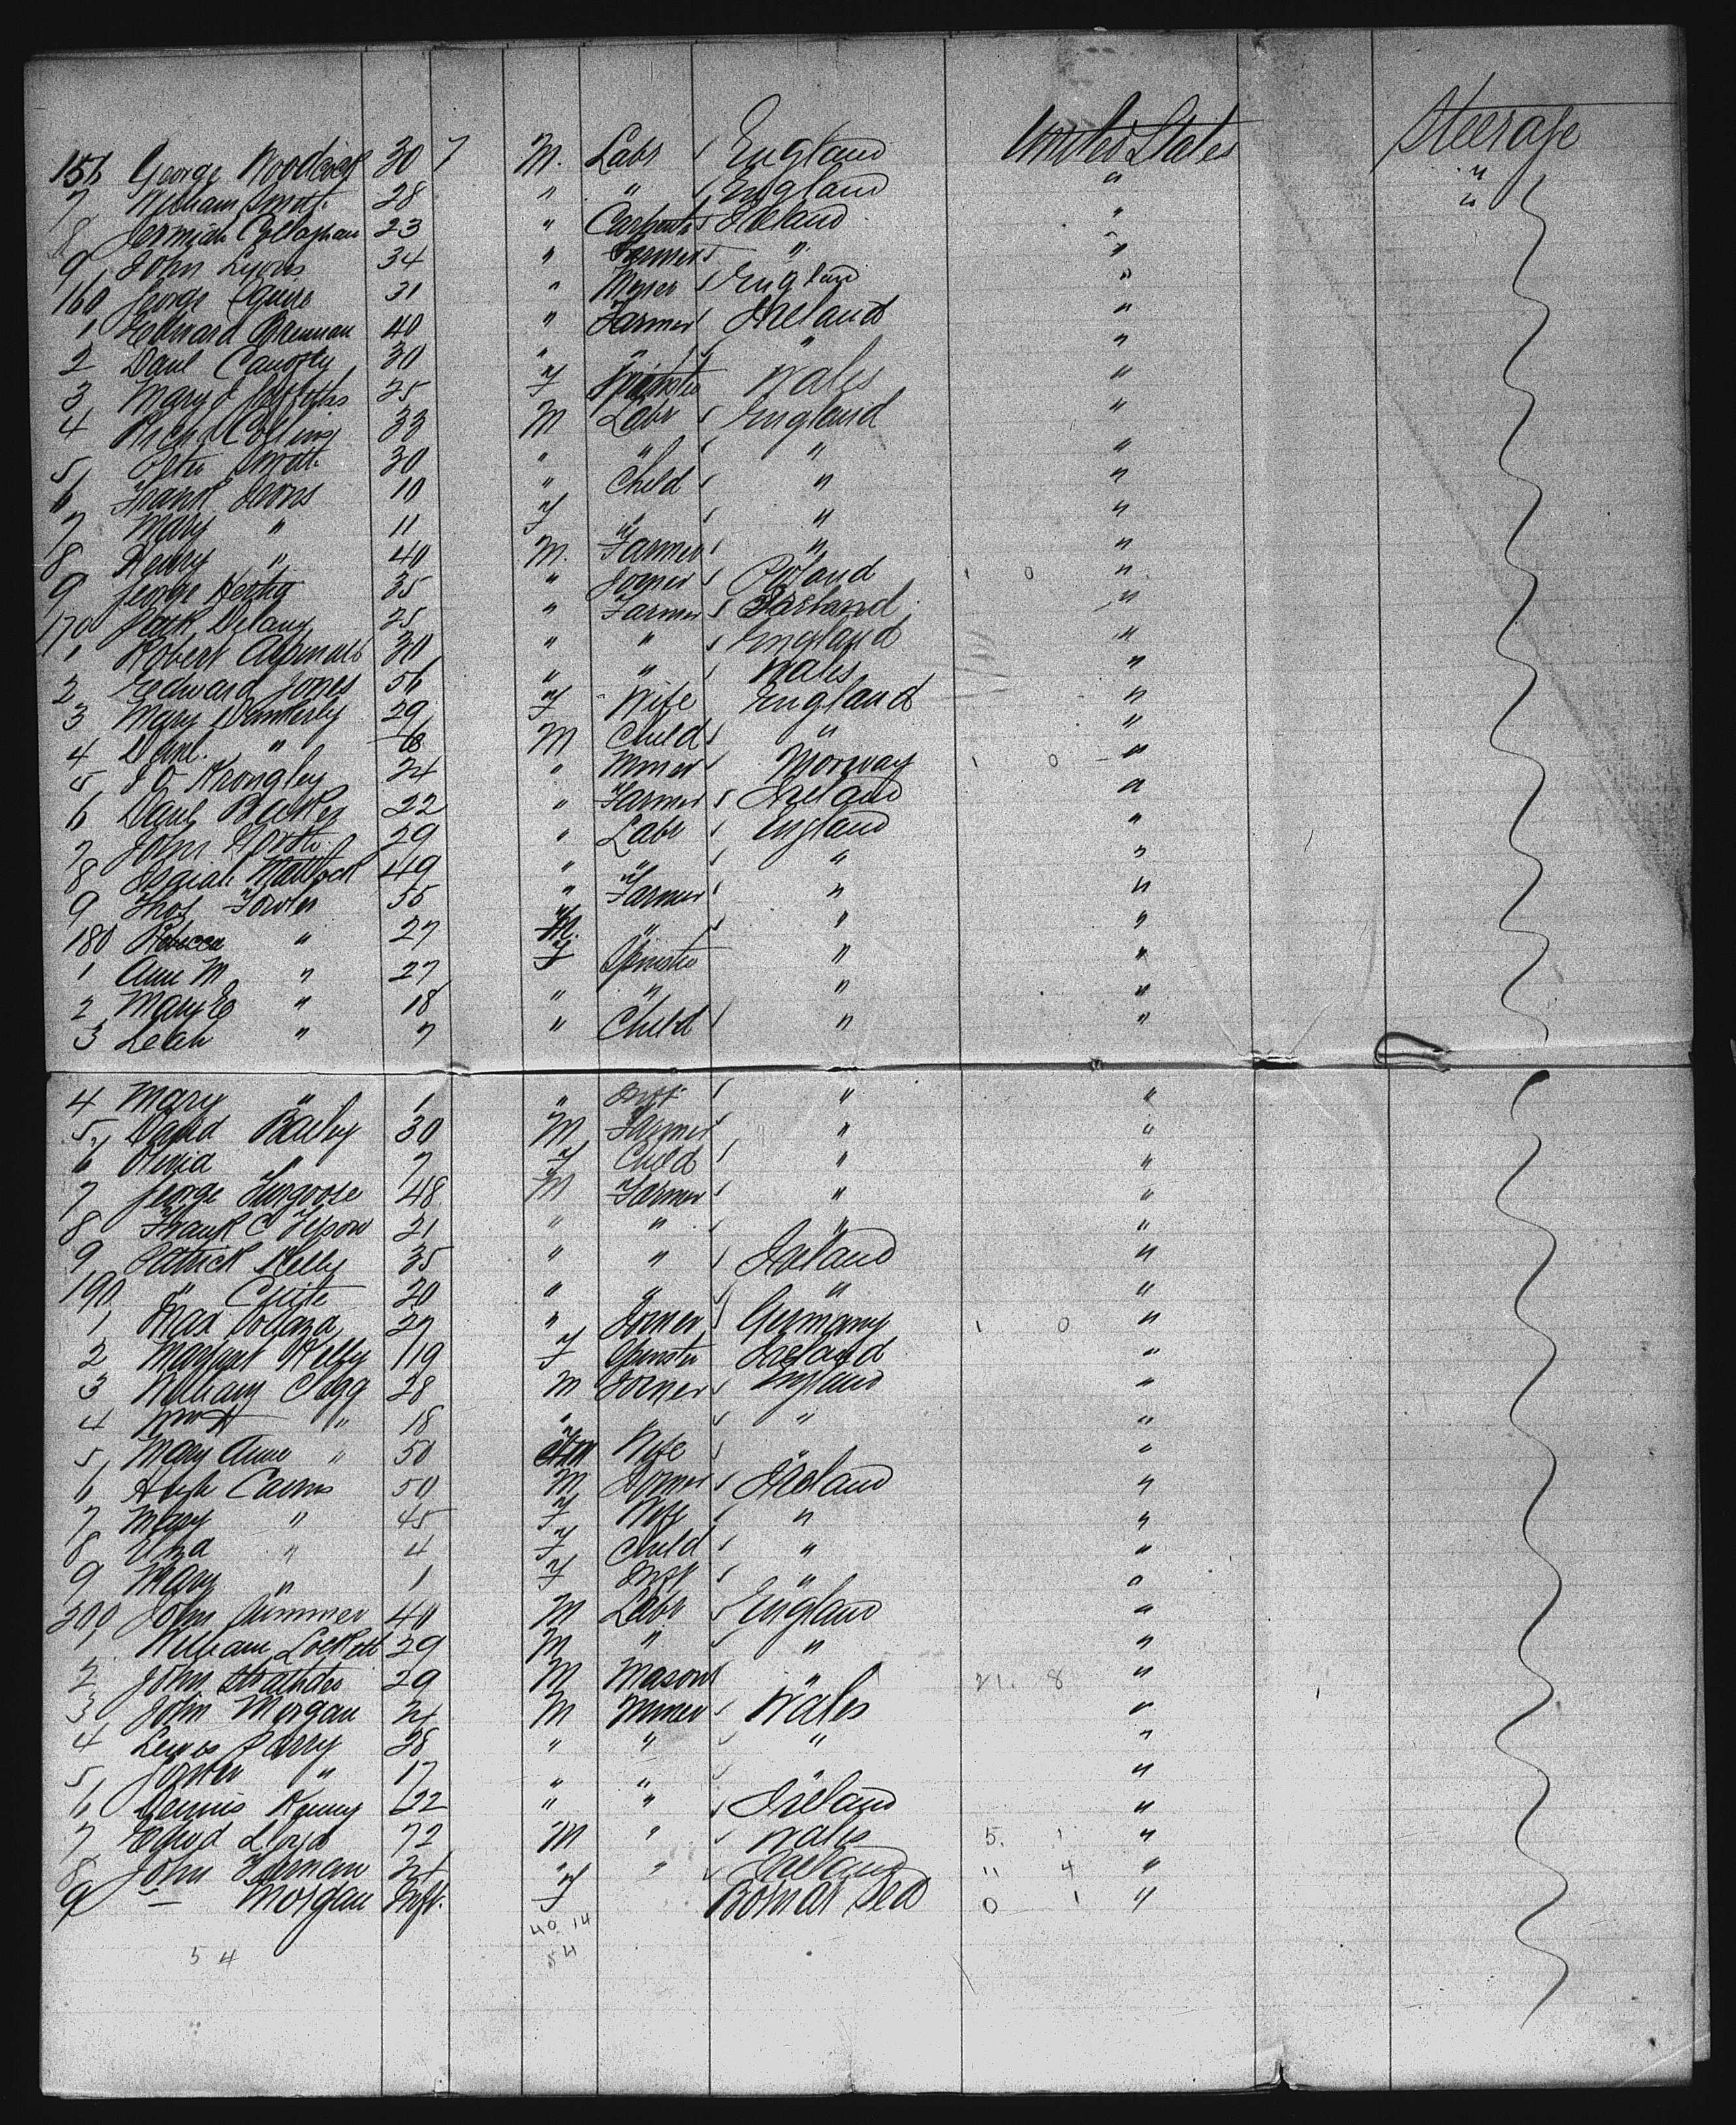 156 George Woodcock 30 7 M. Labr England United States Steerage
7 William Smith 28 " " England " "
8 Jermiah Callaghan 23 " Carpenter Ireland " "
9 John Lyons 34 " Farmer " "
160 George Squire 31 " Miner England "
1 Edward Brennan 40 " Farmer Ireland "
2 Danl 30 " " " "
3 Mary J Griffiths 25 F Spinster Wales "
4 Richd Collins 33 M Labr England "
5 Peter Smith 30 " " " "
6 Frank 10 " Child " "
7 Mary " 11 F " " "
8 Henry " 40 M. Farmer " "
9 George 35 " Joiner Poland 1 0 "
170 Patk Delany 25 " Farmer Ireland "
1 Robert Aspinall 30 " " England "
2 Edward Jones 56 " " Wales "
3 Mary 29 F Wife England "
4 Danl. " M Child " "
5 24 " Miner Norway 1 0 "
6 Danl 22 " Farmer Ireland "
7 John 29 " Labr England "
8 Isaiah Mattock 49 " " " "
9 Thos Fowler 55 " Farmer " "
180 Rebecca " 27 M. " " "
1 Ann M " 27 F Spinster " "
2 Mary E " 18 " " " "
3 Leah " 7 " Child " "
4 Mary " 1 " Inft " "
5 David Bailey 30 M Farmer " "
6 Olivia " 7 F Child " "
7 George 48 M Farmer " "
8 Frank C 21 " " " "
9 Patrick Kelly 35 " " Ireland "
190 " 20 " " " "
1 Max 27 " Joiner Germany 1 0 "
2 Margaret Kelly 19 F Spinster Ireland "
3 William Clegg 28 M Joiner England "
4 " 18 " " "
5 Mary Anne " 50 F Wife "
6 Hugh Cairns 50 M Joiner Ireland "
7 Mary " 45 F Wife " "
8 Eliza " 4 F Child " "
9 Mary " 1 F Inft " "
200 John 40 M Labr England "
1 William Lockett 29 M " " "
2 John 29 M Mason " 21. 8 "
3 John Morgan 24 M Miner Wales "
4 Lewis Parry 28 " " " "
5 " 17 " " " "
6 Dennis Kenny 22 " " Ireland "
7 Edwd Lloyd 72 M " Wales 5. 1 "
8 John 24 " " Ireland 11 4 "
9 — Morgan Inft. F Born at Sea 0 1 "
40 14
54 54